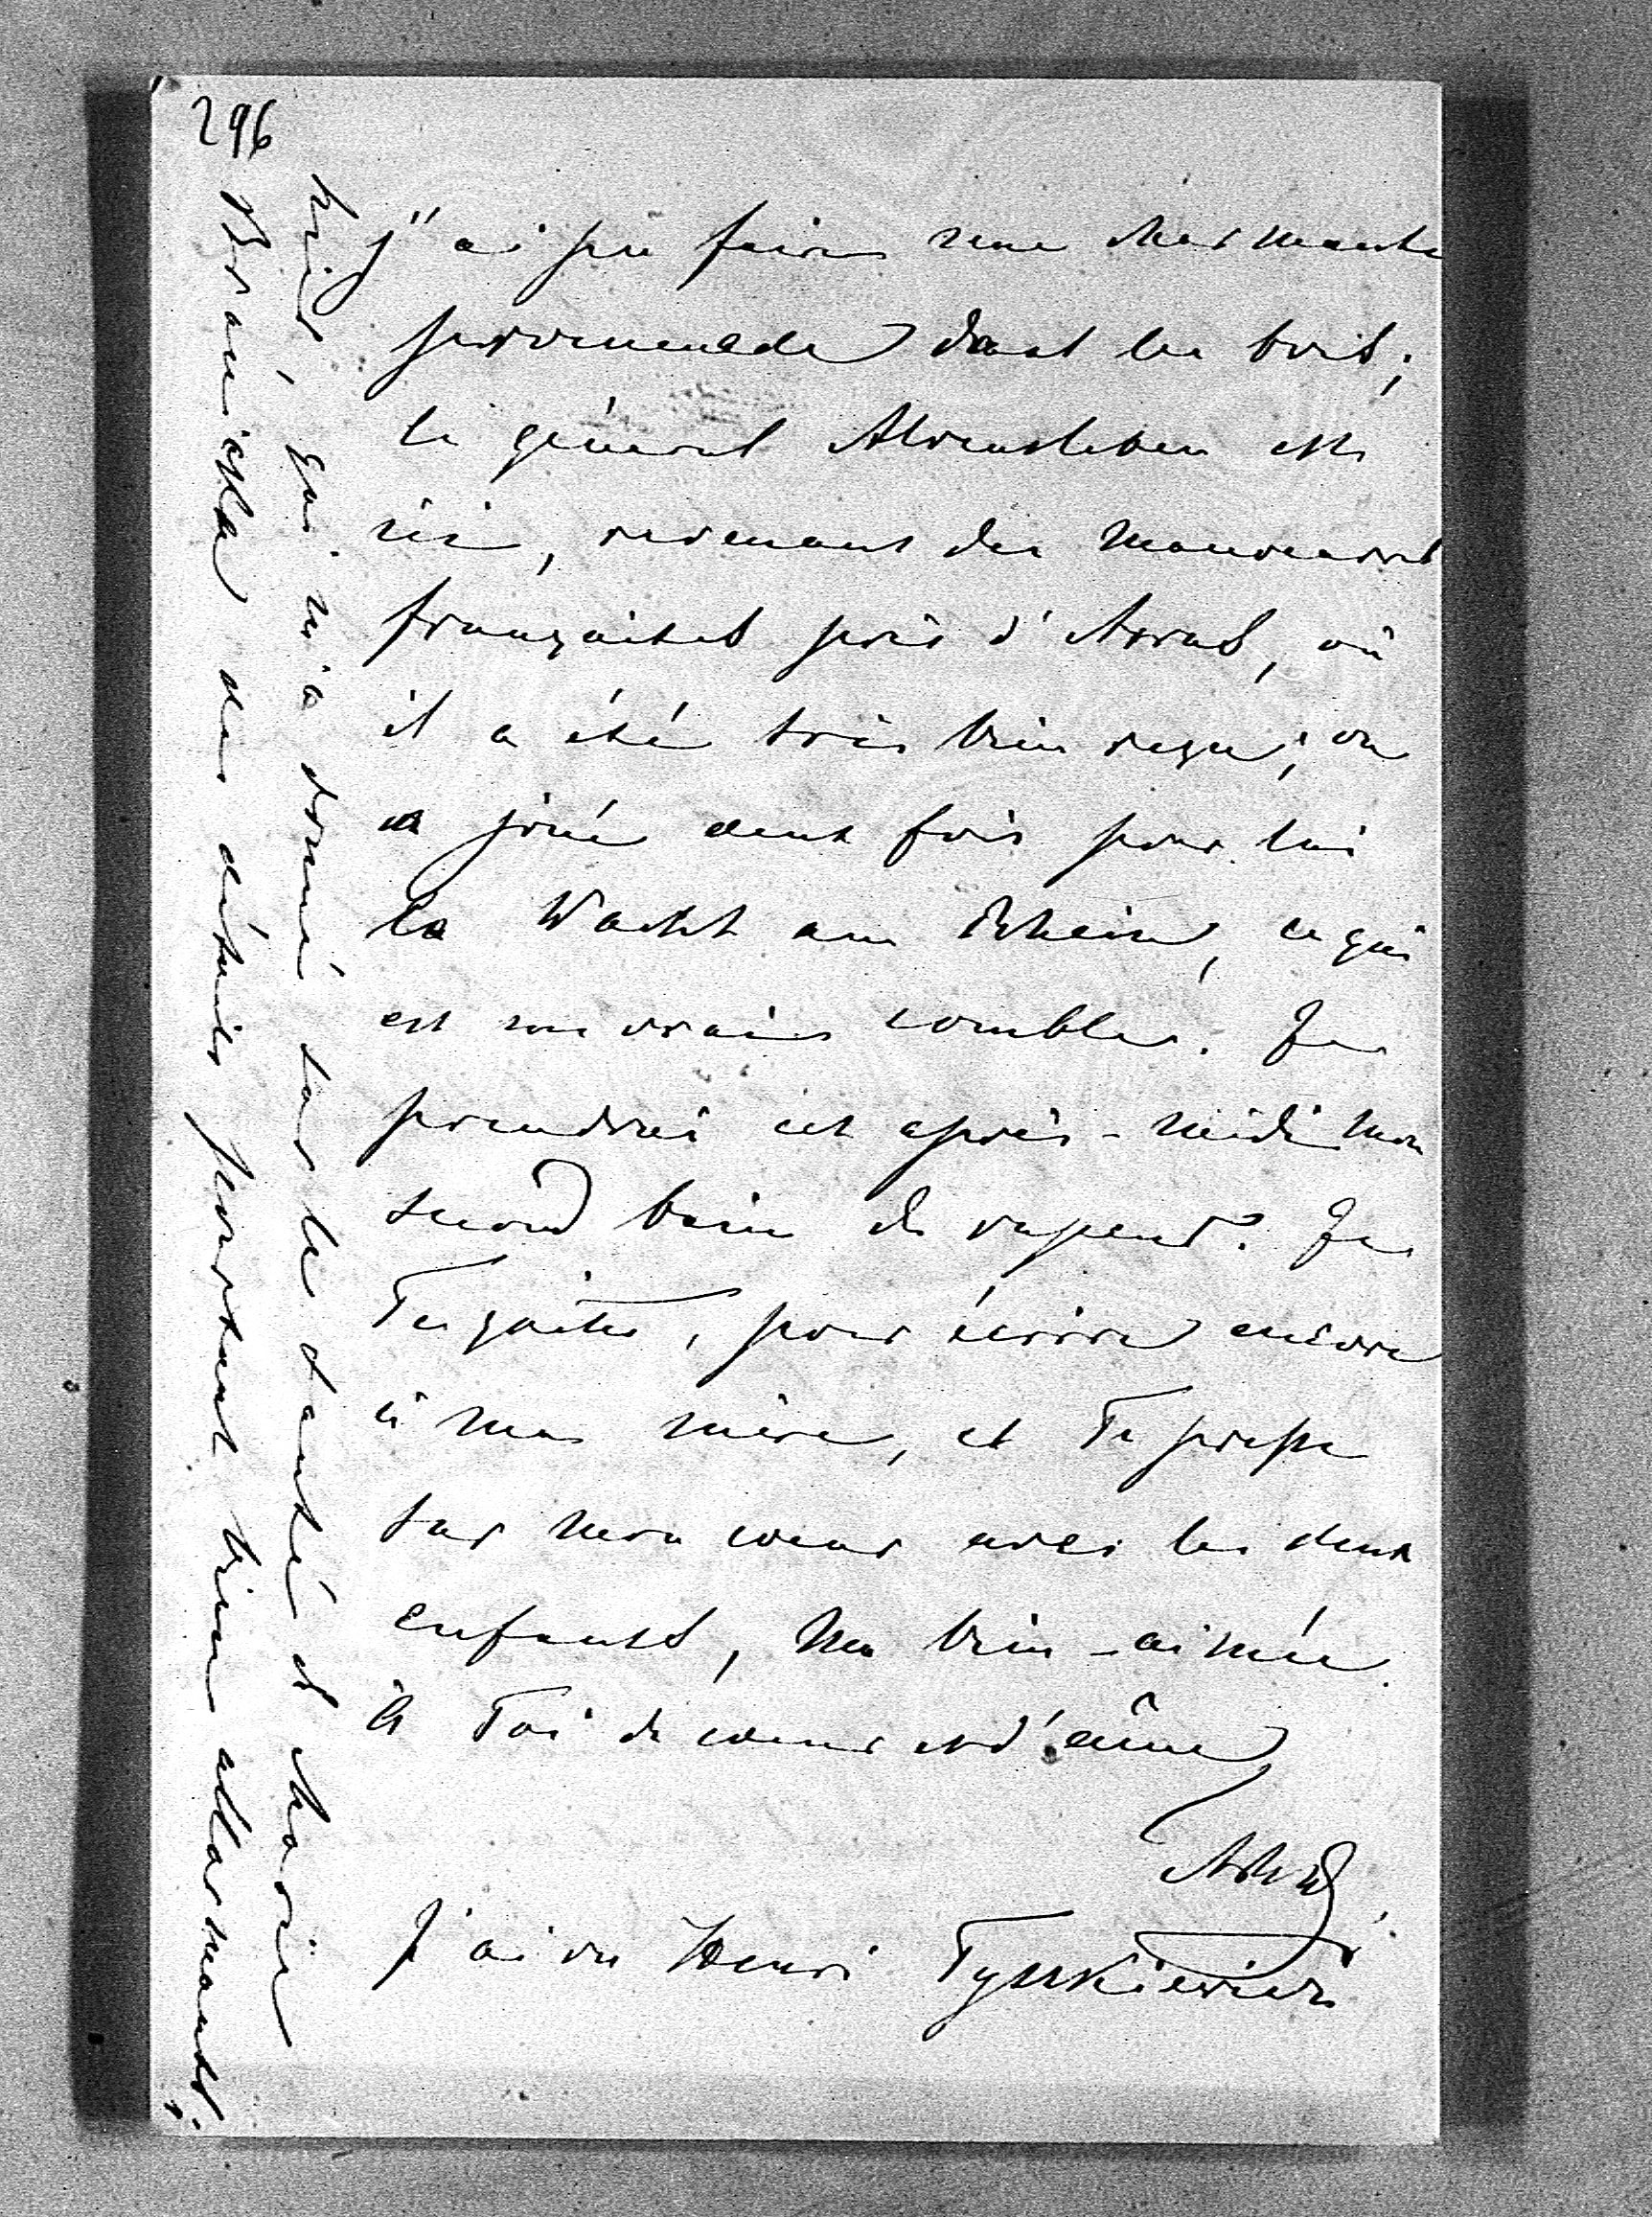 296
j'ai pu faire une charmante
promenade dans les bois;
le général Alvensleben est
ici, revenant des manœuvres
françaises près d'Arras, où
il a été très bien reçu; on
a joué deux fois pour lui
la Wacht am Rhein, ce qui
est un vrai comble. Je
prendrai cet après-midi mon
second bain de vapeur. Je
Te quitte, pour écrire encore
à ma mère, et Te presse
sur mon cœur avec les deux
enfants, ma bien-aimée.
à Toi de cœur et d'âme
J'ai vu Henri Tyszkiewicz
qui m'a donné sur la santé de Marie
Branicka des détails pourtant bien allarmants.